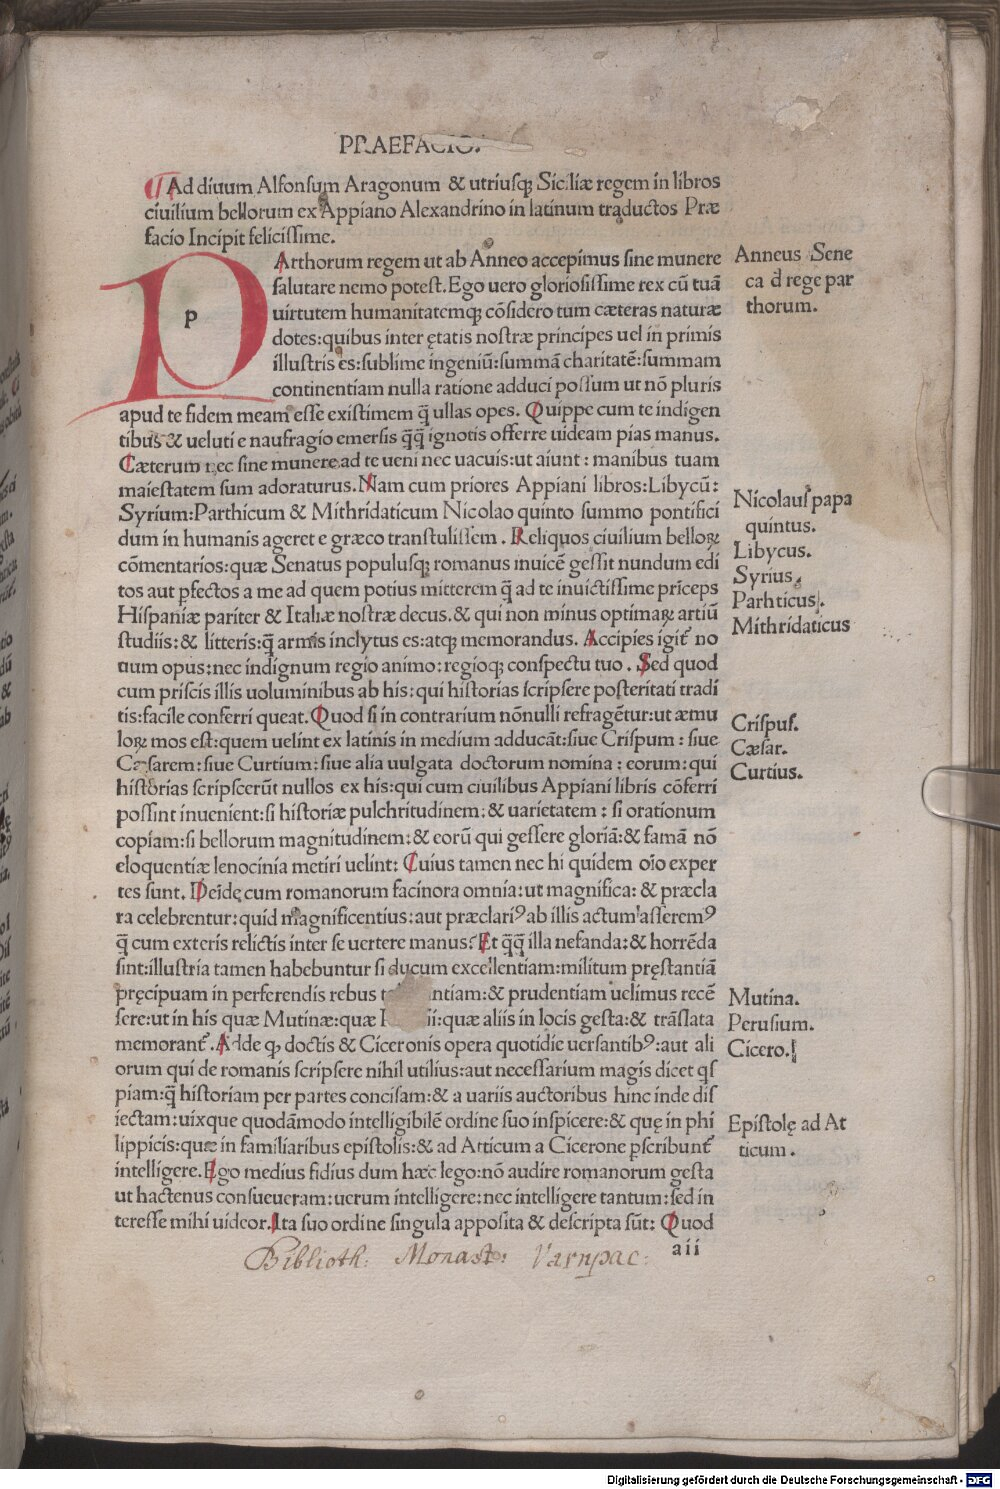 PRAEFACIO.
Ad diuum Alfonsum Aragonum & utriusqꝫ Siciliæ regem in libros
ciuilium bellorum ex Appiano Alexandrino in latinum traductos Præ
facio Incipit felicissime.
p
PArthorum regem ut ab Anneo accepimus sine munere
salutare nemo potest. Ego uero gloriosissime rex cū tuā
uirtutem humanitatemqꝫ cōsidero tum cæteras naturæ
dotes:quibus inter ętatis nostræ principes uel in primis
illustris es:sublime ingeniū:summā charitatē:summam
continentiam nulla ratione adduci possum ut nō pluris
apud te fidem meam esse existimem q̄ ullas opes. Quippe cum te indigen
tibus & ueluti e naufragio emersis q̄q̄ ignotis offerre uideam pias manus.
Cæterum nec sine munere ad te ueni nec uacuis:ut aiunt: manibus tuam
maiestatem sum adoraturus. Nam cum priores Appiani libros:Libycū:
Syrium:Parthicum & Mithridaticum Nicolao quinto summo pontifici
dum in humanis ageret e græco transtulissem. Reliquos ciuilium belloꝝ
cōmentarios:quæ Senatus populusqꝫ romanus inuicē gessit nundum edi
tos aut ꝑfectos a me ad quem potius mitterem q̄ ad te inuictissime prīceps
Hispaniæ pariter & Italiæ nostræ decus. & qui non minus optimaꝝ artiū
studiis: & litteris:q̄ armis inclytus es:atqꝫ memorandus. Accipies igit̄ no
uum opus:nec indignum regio animo:regioqꝫ conspectu tuo. Sed quod
cum priscis illis uoluminibus ab his:qui historias scripsere posteritati tradi
tis:facile conferri queat. Quod si in contrarium nōnulli refragētur:ut æmu
loꝝ mos est:quem uelint ex latinis in medium adducāt:siue Crispum: siue
Cæsarem:siue Curtium:siue alia uulgata doctorum nomina: eorum:qui
historias scripscerūt nullos ex his:qui cum ciuilibus Appiani libris cōferri
possint inuenient:si historiæ pulchritudinem:& uarietatem: si orationum
copiam:si bellorum magnitudinem:& eorū qui gessere gloriā:& famā nō
eloquentiæ lenocinia metiri uelint: Cuius tamen nec hi quidem oīo exper
tes sunt. Deīdę cum romanorum facinora omnia:ut magnifica: & præcla
ra celebrentur:quid magnificentius:aut præclariꝰ ab illis actum asseremꝰ
q̄ cum exteris relictis inter se uertere manus? Et q̄q̄ illa nefanda:& horrēda
sint:illustria tamen habebuntur si ducum excellentiam:militum pręstantiā
pręcipuam in perferendis rebus ntiam:& prudentiam uelimus recē
sere:ut in his quæ Mutinæ:quæ ii:quæ aliis in locis gesta:& trāslata
memorant̄. Adde qꝫ doctis & Ciceronis opera quotidie uersantibꝰ:aut ali
orum qui de romanis scripsere nihil utilius:aut necessarium magis dicet qs
piam:q̄ historiam per partes concisam:& a uariis auctoribus hinc inde dis
iectam:uixque quodāmodo intelligibilē ordine suo inspicere:& quę in phi
lippicis:quæ in familiaribus epistolis:& ad Atticum a Cicerone ꝑscribunt̄
intelligere. Ego medius fidius dum hæc lego:nō audire romanorum gesta
ut hactenus consueueram:uerum intelligere:nec intelligere tantum:sed in
teresse mihi uideor. Ita suo ordine singula apposita & descripta sūt: Quod
aii
Anneus Sene
ca d̄ rege par
thorum.
Nicolaus papa
quintus.
Libycus.
Syrius.
Parhticus.
Mithridaticus
Crispus.
Cæsar.
Curtius.
Mutina.
Perusium.
Cicero.
Epistolę ad At
ticum.
Biblioth: Monast: Varnpac:
Digitalisierung gefördert durch die Deutsche Forschungsgemeinschaft - DFG